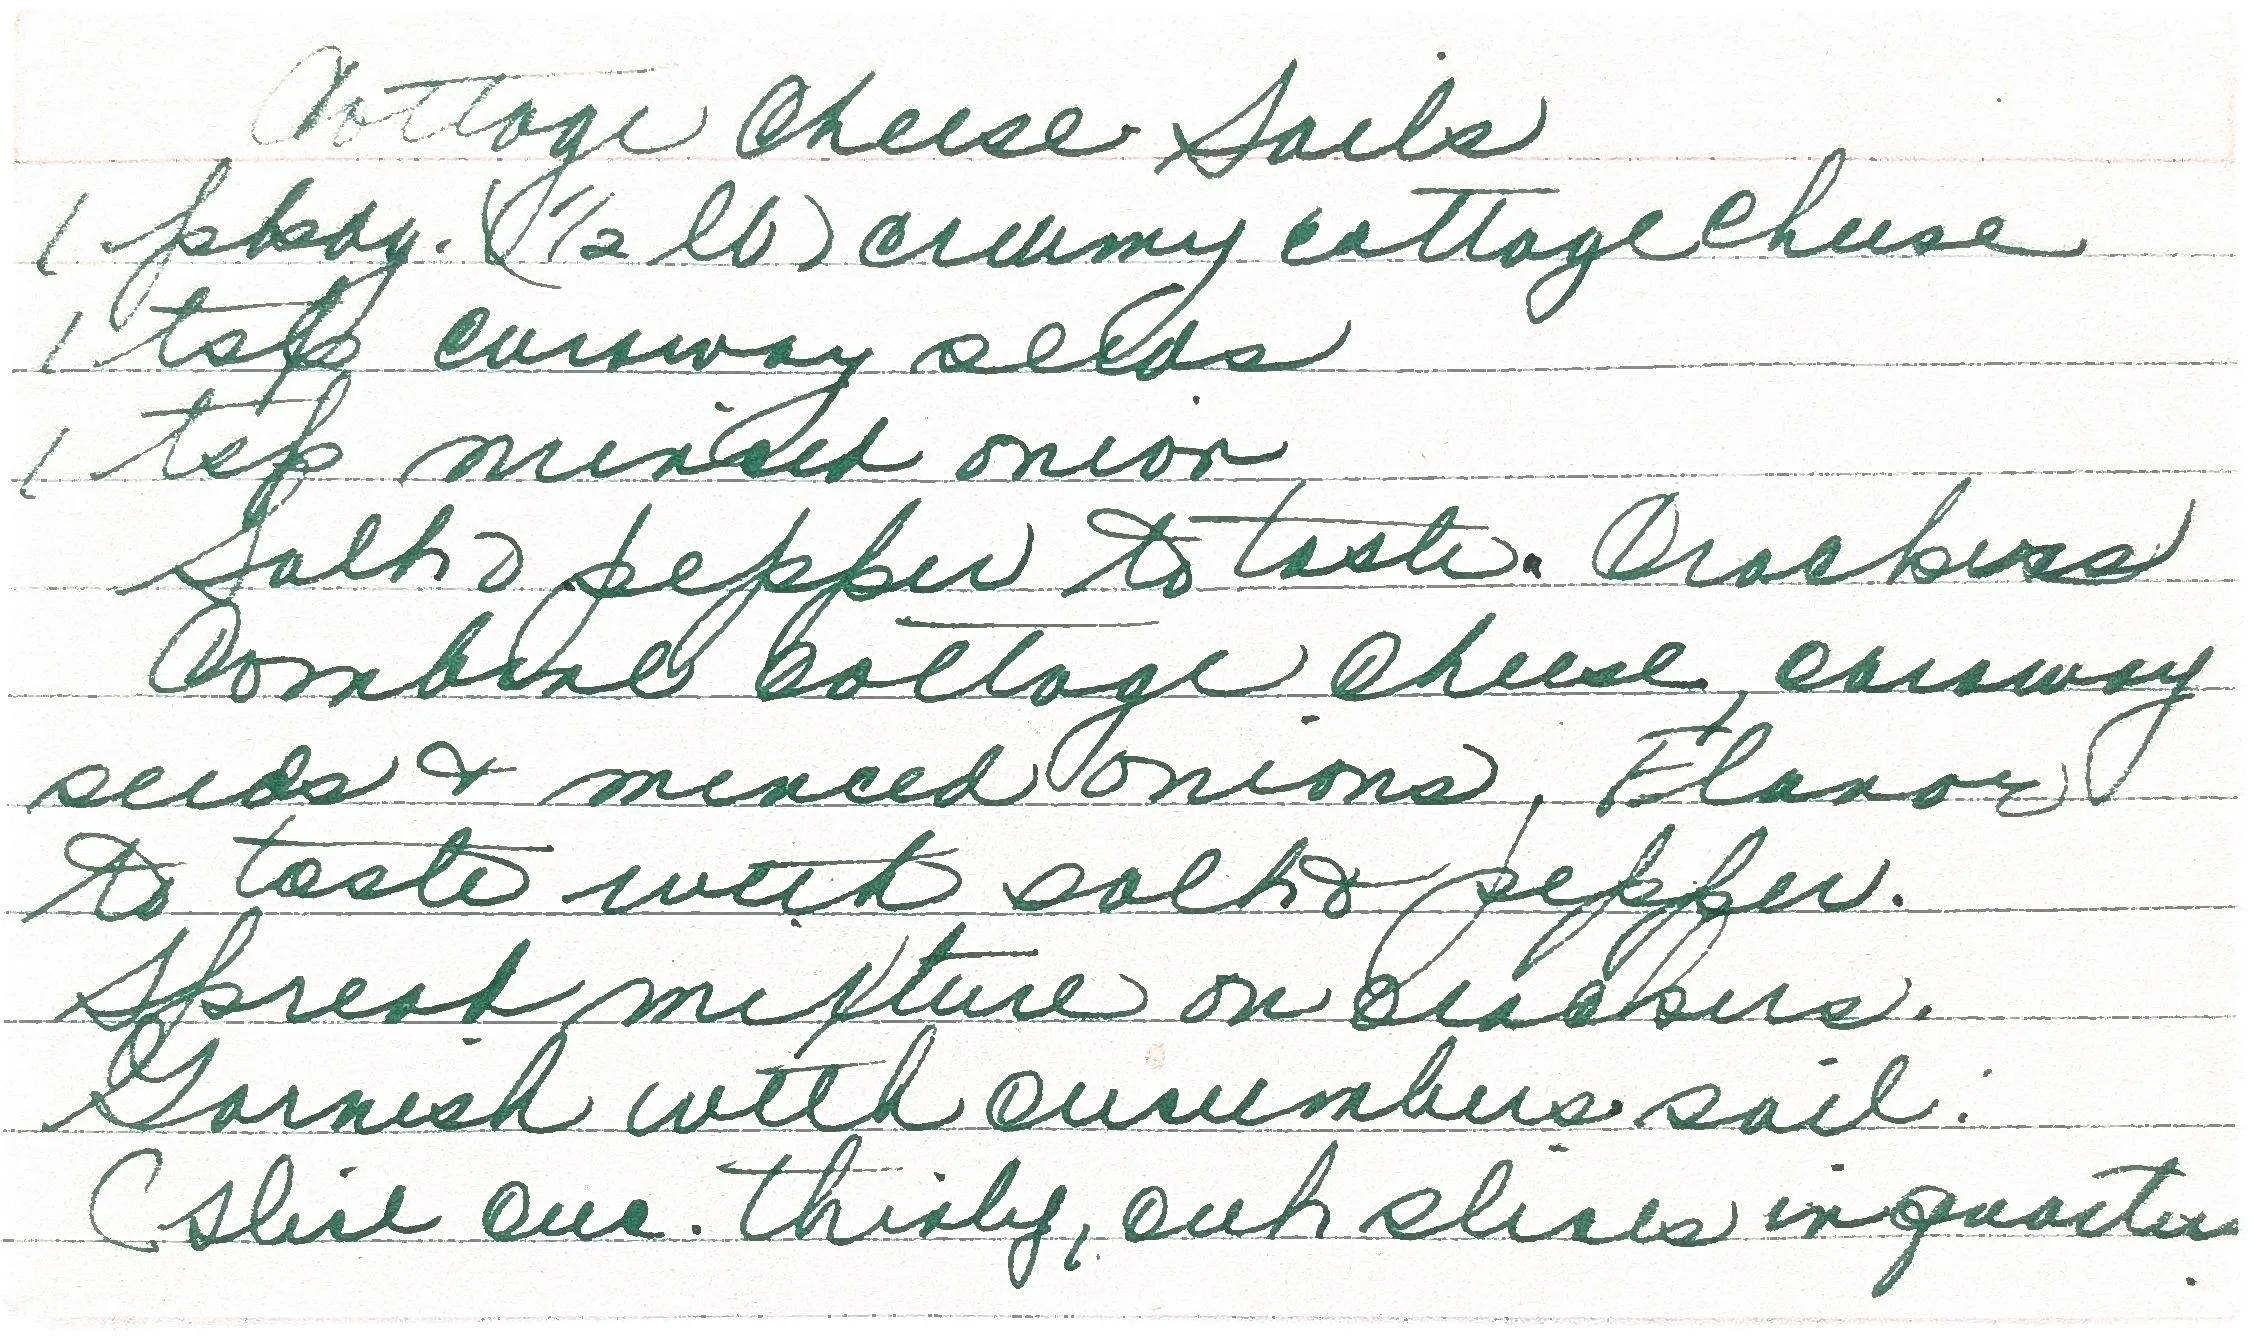 Cottage Cheese Sails
1 pkg. (1/2 lb) creamy cottage cheese
1 tsp caraway seeds
1 tsp minced onion
Salt & pepper to taste. Crackers
Combine Cottage Cheese, caraway
seeds & minced onions, Flavor
to taste with salt & pepper.
Spread mixture on crackers.
Garnish with cucumber sail:
(slice cuc. thinly, cut slices in quarters.